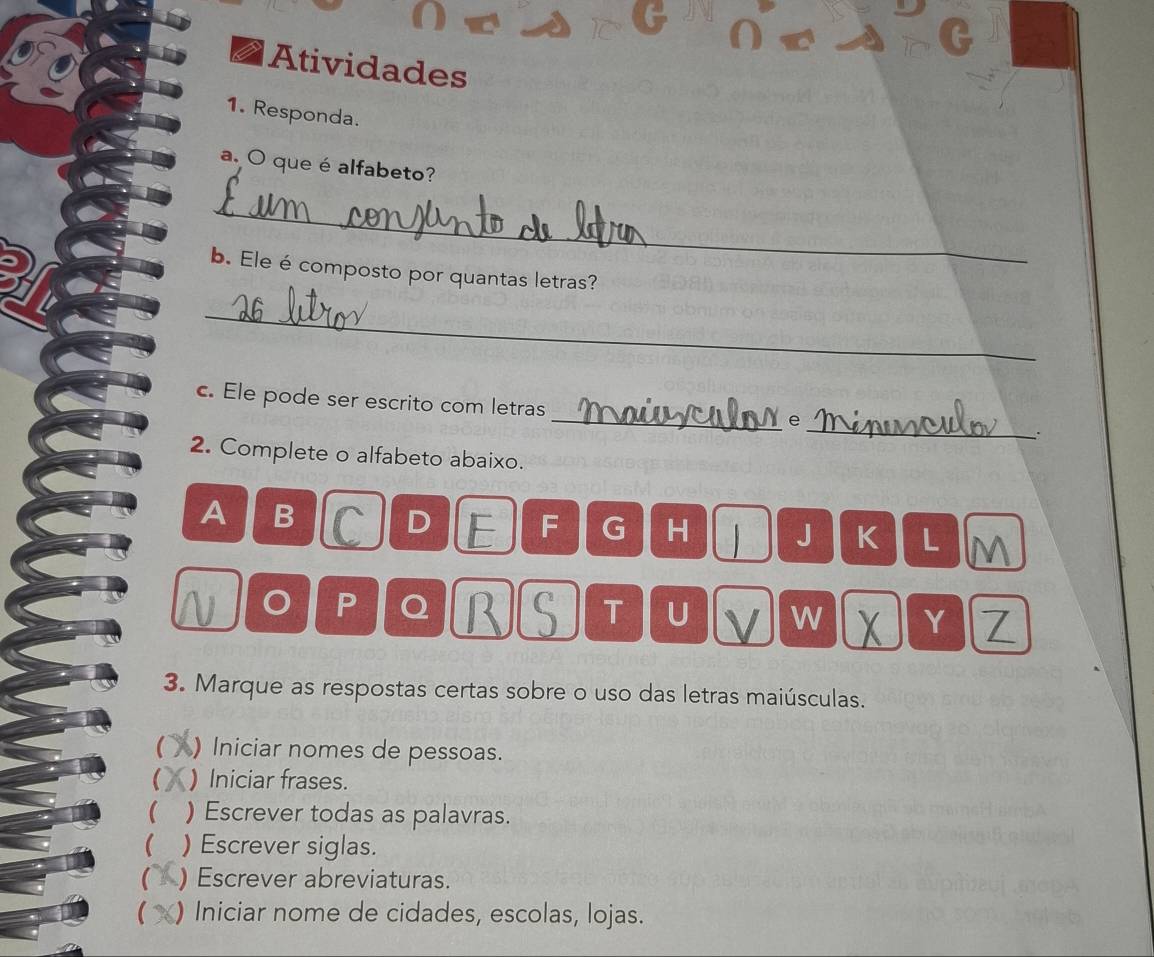 Atividades
1. Responda.
a. O que é alfabeto?
É um conjunto de letra
b. Ele é composto por quantas letras?
26 letras
c. Ele pode ser escrito com letras maiusculas e minusculas.
2. Complete o alfabeto abaixo.
A B C D E F G H I J K L M
N O P Q R S T U V W X Y Z
3. Marque as respostas certas sobre o uso das letras maiúsculas.
( X ) Iniciar nomes de pessoas.
( X ) Iniciar frases.
( ) Escrever todas as palavras.
( ) Escrever siglas.
( X ) Escrever abreviaturas.
( X ) Iniciar nome de cidades, escolas, lojas.